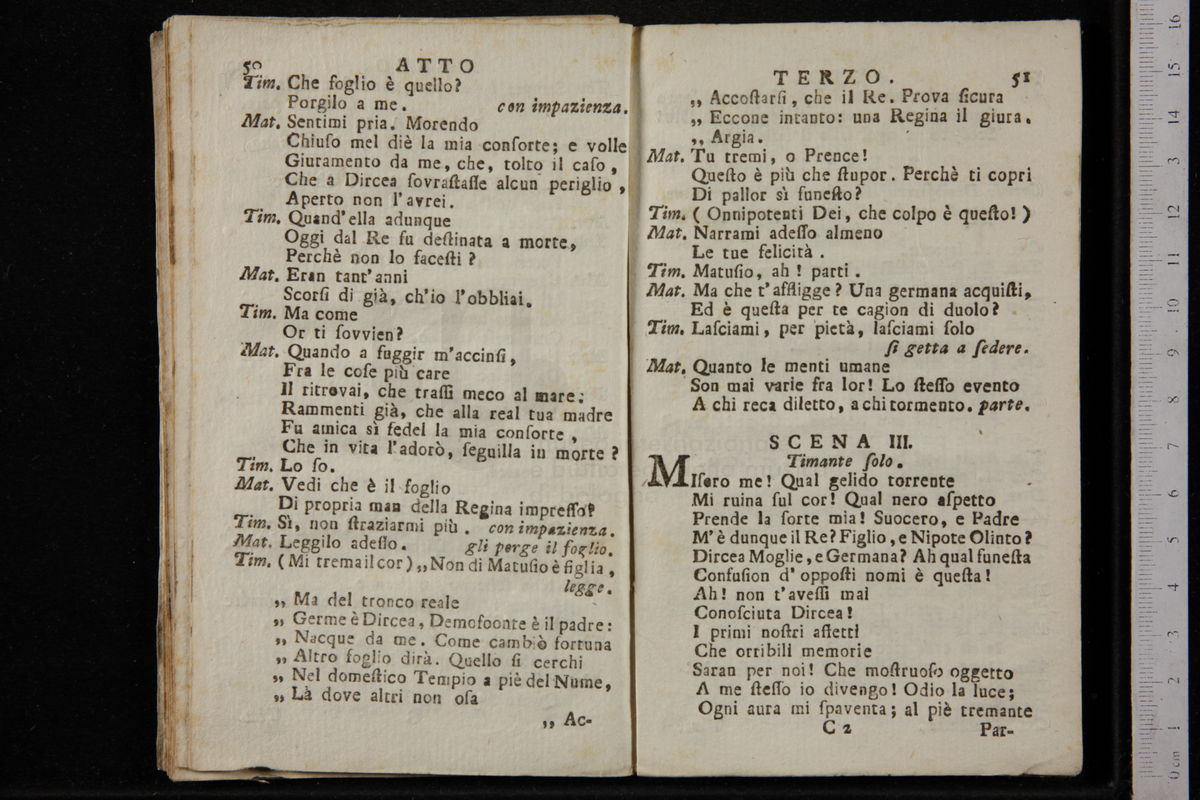 50 ATTO
Tim. Che foglio è quello?
Porgilo a me. con impazienza.
Mat. Sentimi pria. Morendo
Chiuſo mel diè la mia conſorte; e volle
Giuramento da me, che, tolto il caſo,
Che a Dircea ſovraſtaſſe alcun periglio,
Aperto non l'avrei.
Tim. Quand'ella adunque
Oggi dal Re fu deſtinata a morte,
Perchè non lo faceſti?
Mat. Eran tant'anni
Scorſi di già, ch'io l'obbliai.
Tim. Ma come
Or ti ſovvien?
Mat. Quando a fuggir m'accinſi,
Fra le coſe più care
Il ritrovai, che traſſi meco al mare;
Rammenti già, che alla real tua madre
Fu amica sì fedel la mia conſorte,
Che in vita l'adorò, ſeguilla in morte?
Tim. Lo ſo.
Mat. Vedi che è il foglio
Di propria man della Regina impreſſo?
Tim. Sì, non ſtraziarmi più. con impazienza.
Mat. Leggilo adeſſo. gli porge il foglio.
Tim. (Mi trema il cor) „Non di Matuſio è figlia,
legge.
„ Ma del tronco reale
„ Germe è Dircea, Demofoonte è il padre:
„ Nacque da me. Come cambiò fortuna
„ Altro foglio dirà. Quello ſi cerchi
„ Nel domeſtico Tempio a piè del Nume,
„ Là dove altri non oſa
„ Ac-
TERZO. 51
„ Accoſtarſi, che il Re. Prova ſicura
„ Eccone intanto: una Regina il giura.
„ Argia.
Mat. Tu tremi, o Prence!
Queſto è più che ſtupor. Perchè ti copri
Di pallor sì funeſto?
Tim. (Onnipotenti Dei, che colpo è queſto!)
Mat. Narrami adeſſo almeno
Le tue felicità.
Tim. Matuſio, ah! parti.
Mat. Ma che t'affligge? Una germana acquiſti,
Ed è queſta per te cagion di duolo?
Tim. Laſciami, per pietà, laſciami ſolo
ſi getta a ſedere.
Mat. Quanto le menti umane
Son mai varie fra lor! Lo ſteſſo evento
A chi reca diletto, a chi tormento. parte.
SCENA III.
Timante ſolo.
MIſero me! Qual gelido torrente
Mi ruina ſul cor! Qual nero aſpetto
Prende la ſorte mia! Suocero, e Padre
M'è dunque il Re? Figlio, e Nipote Olinto?
Dircea Moglie, e Germana? Ah qual funeſta
Confuſion d'oppoſti nomi è queſta!
Ah! non t'aveſſi mai
Conoſciuta Dircea!
I primi noſtri affetti
Che orribili memorie
Saran per noi! Che moſtruoſo oggetto
A me ſteſſo io divengo! Odio la luce;
Ogni aura mi ſpaventa; al piè tremante
C 2 Par-
0 cm 1 2 3 4 5 6 7 8 9 10 11 12 3 14 15 16